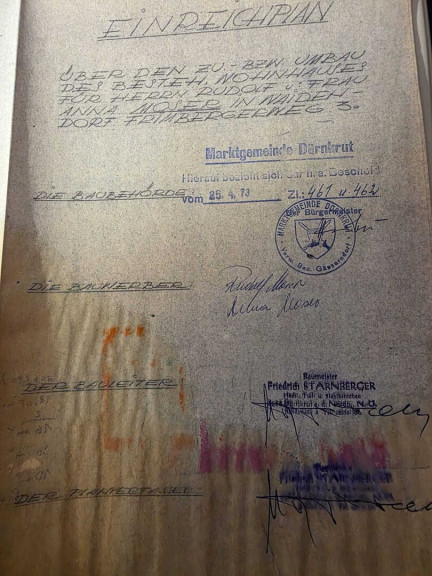 EINREICHPLAN
ÜBER DEN ZU.- BZW. UMBAU
DES BESTEH. WOHNHAUSES
FÜR HERRN RUDOLF U. FRAU
ANNA MOSER IN WAIDEN-
DORF FRIMBERGERWEG 3.
Marktgemeinde Dürnkrut
Hierauf bezieht sich der h.a. Bescheid
DIE BAUBEHÖRDE:
vom 25. 4. 73 Zl.: 461 u. 462
Der Bürgermeister
MARKTGEMEINDE DÜRNKRUT
Verw. Bez. Gänserndorf
DIE BAUWERBER:
Rudolf Moser
Moser
DER BAULEITER:
Baumeister
Friedrich STARNBERGER
DER PLANVERFASSER:
STARNBERGER